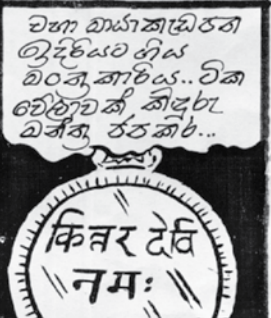 වහා ඔයා කැඩපත
ඉදිරියට ගිය
මංත්‍රකාරිය.. ටික
වේලාවක් කිඳුරු
මන්ත්‍ර ජප කිර...
किन्नर देवि
नमः